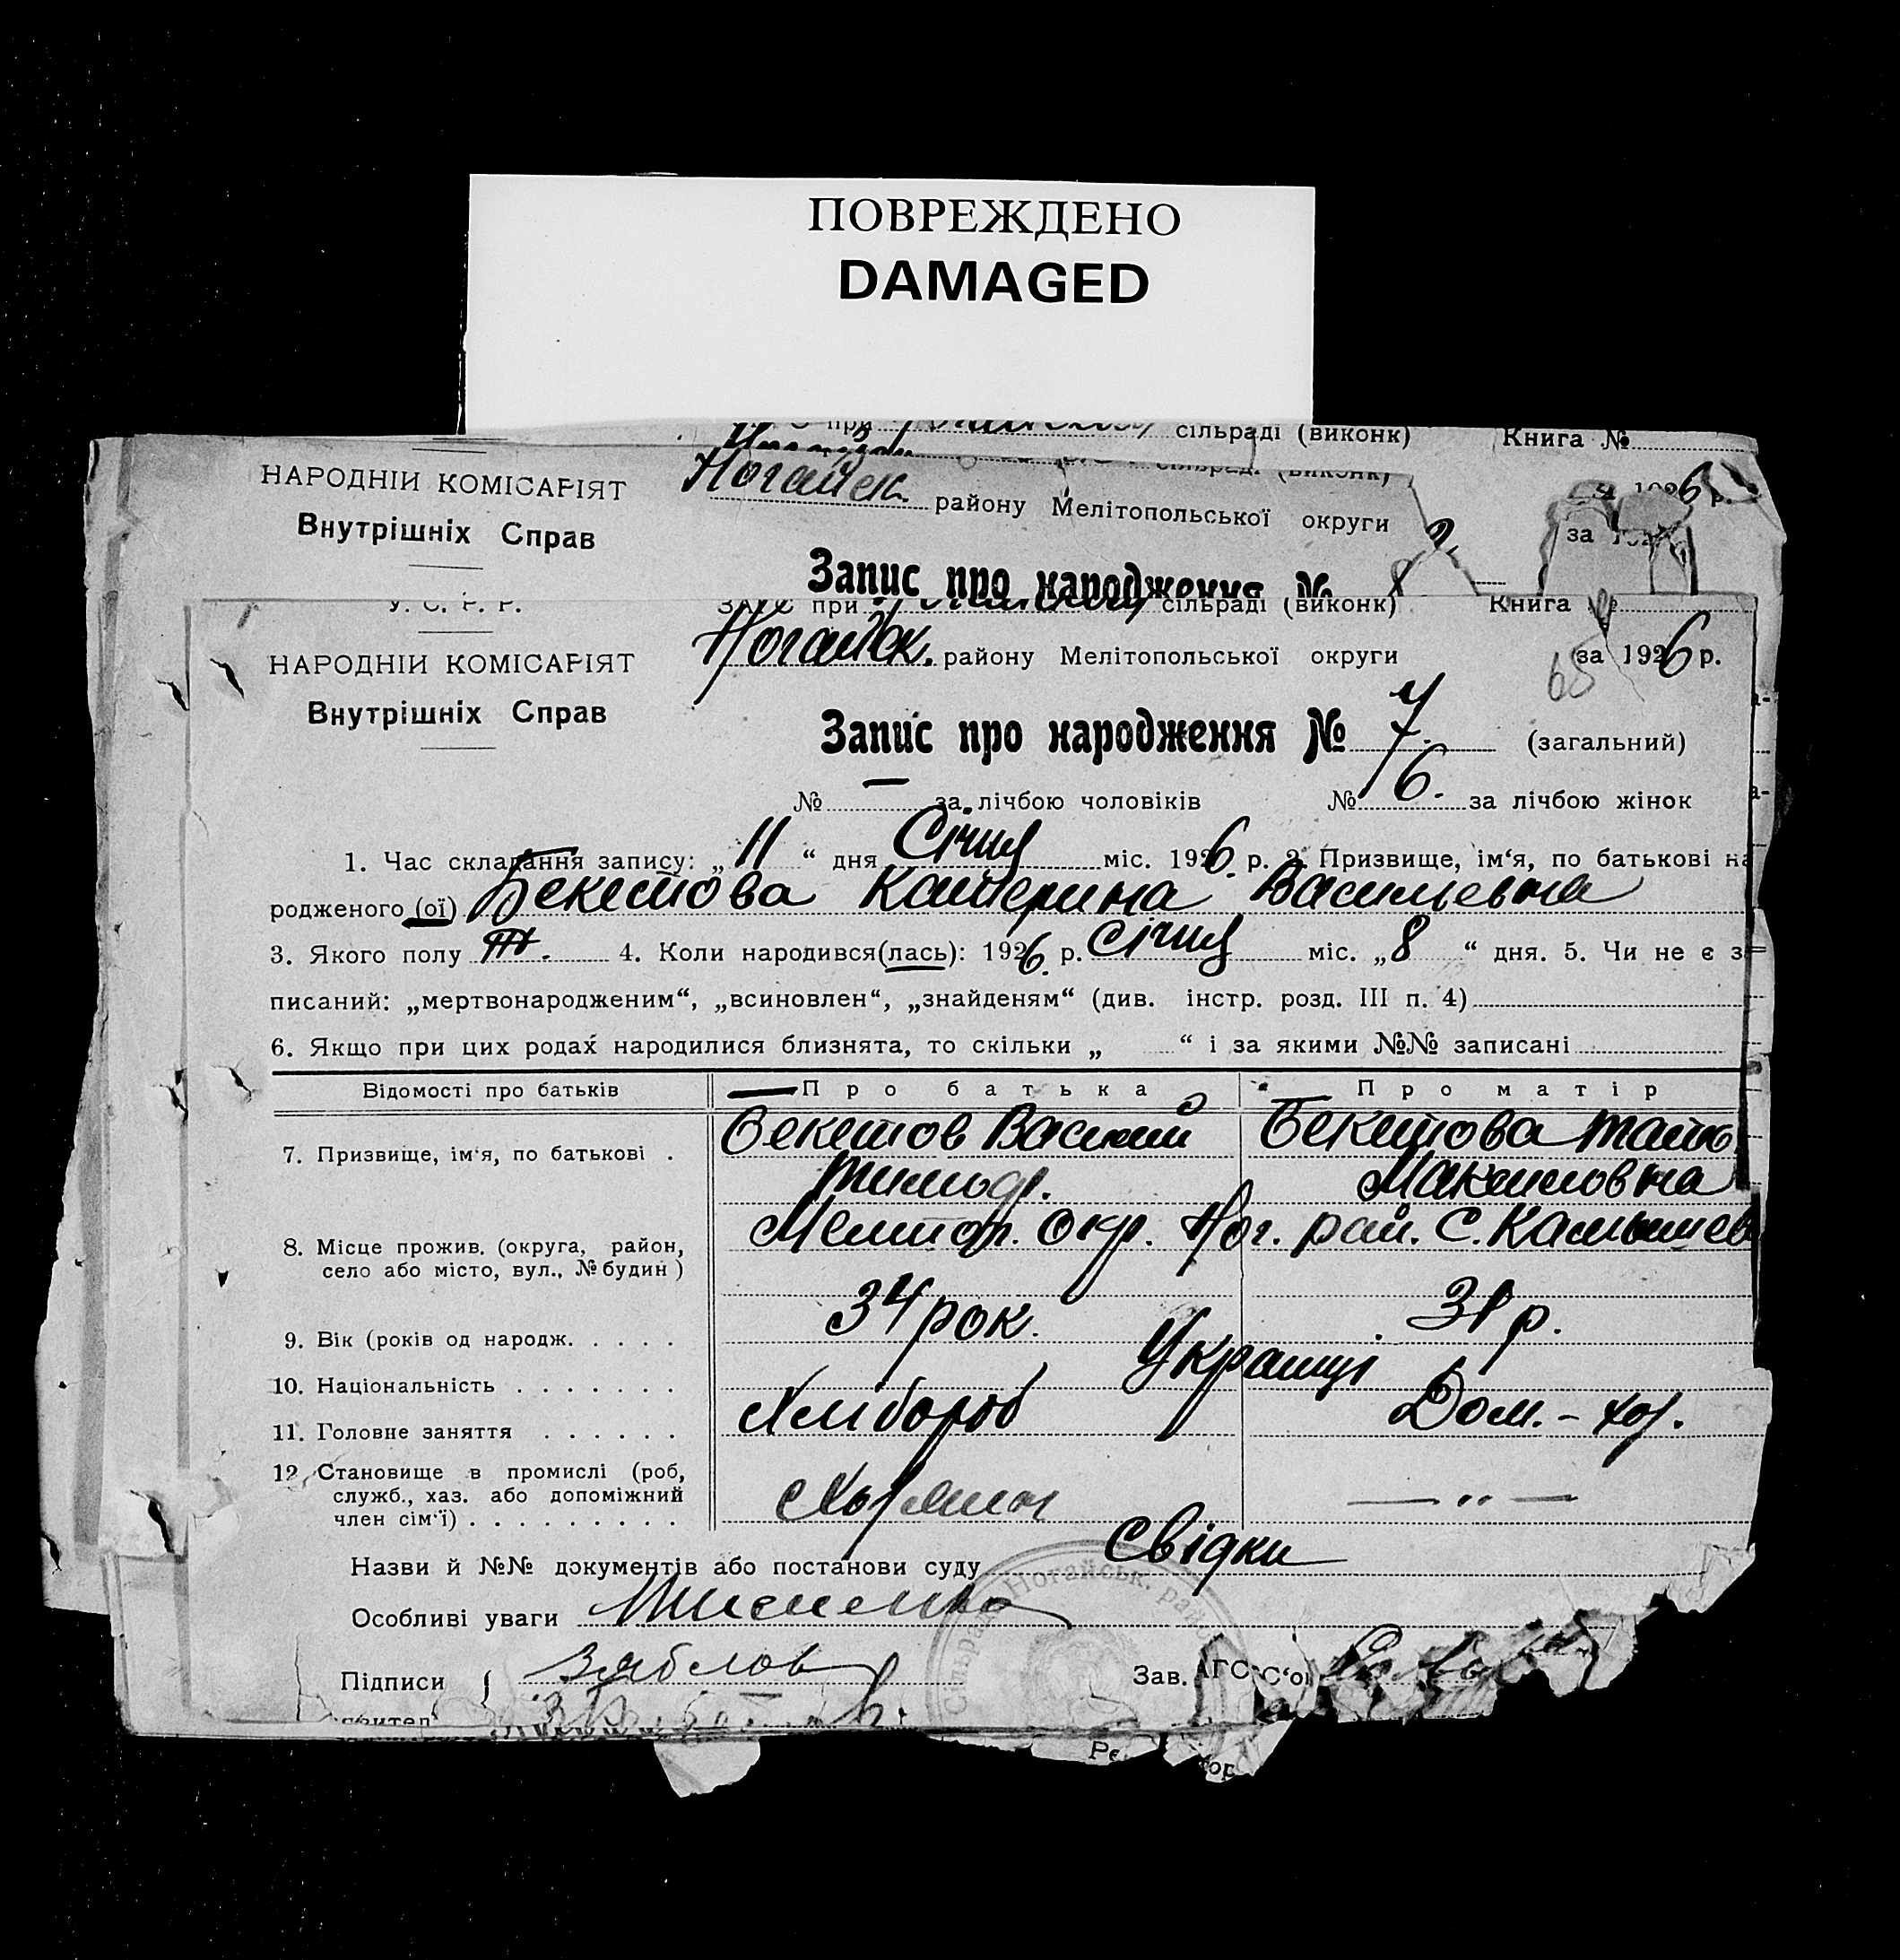 ПОВРЕЖДЕНО
DAMAGED
при сільраді (виконк) Книга №
НАРОДНІЙ КОМІСАРІЯТ
Ногайск. району Мелітопольської округи за 1926 р.
Внутрішніх Справ
Запис про народження №
У. С. Р. Р.
ЗАГС при сільраді (виконк) Книга №
Ногайск. району Мелітопольської округи за 1926 р.
НАРОДНІЙ КОМІСАРІЯТ
65
Внутрішніх Справ
Запис про народження № 7. (загальний)
№ — за лічбою чоловіків № 6. за лічбою жінок
1. Час складання запису: „11“ дня Січня міс. 1926. р. 2. Призвище, ім‘я, по батькові на
родженого (ої) Бекетова Катерина Васильевна
3. Якого полу Ж. 4. Коли народився(лась): 1926. р. Січня міс. „8“ дня. 5. Чи не є за
писаний: „мертвонародженим“, „всиновлен“, „знайденям“ (див. інстр. розд. III п. 4)
6. Якщо при цих родах народилися близнята, то скільки „ “ і за якими №№ записані
Відомості про батьків Про батька Про матір
7. Призвище, ім‘я, по батькові . Бекетов Василий Бекетова
Тимоф. Максимовна
8. Місце прожив. (округа, район, Мелитоп. Окр. Ног. рай. С. Камышев
село або місто, вул., № будин)
9. Вік (років од народж. . . . . 34 рок. 31 р.
10. Національність . . . . . . . Українці
11. Головне заняття . . . . . . Хлібороб Дом.-хоз.
12. Становище в промислі (роб,
служб., хаз. або допоміжний
член сім‘ї) . . . . . . . . . Хозяин — „ —
Назви й №№ документів або постанови суду Свідки
Особливі уваги
Сільради Ногайськ. райо
Підписи Зяблов Зав. АГС‘С‘ом
явител